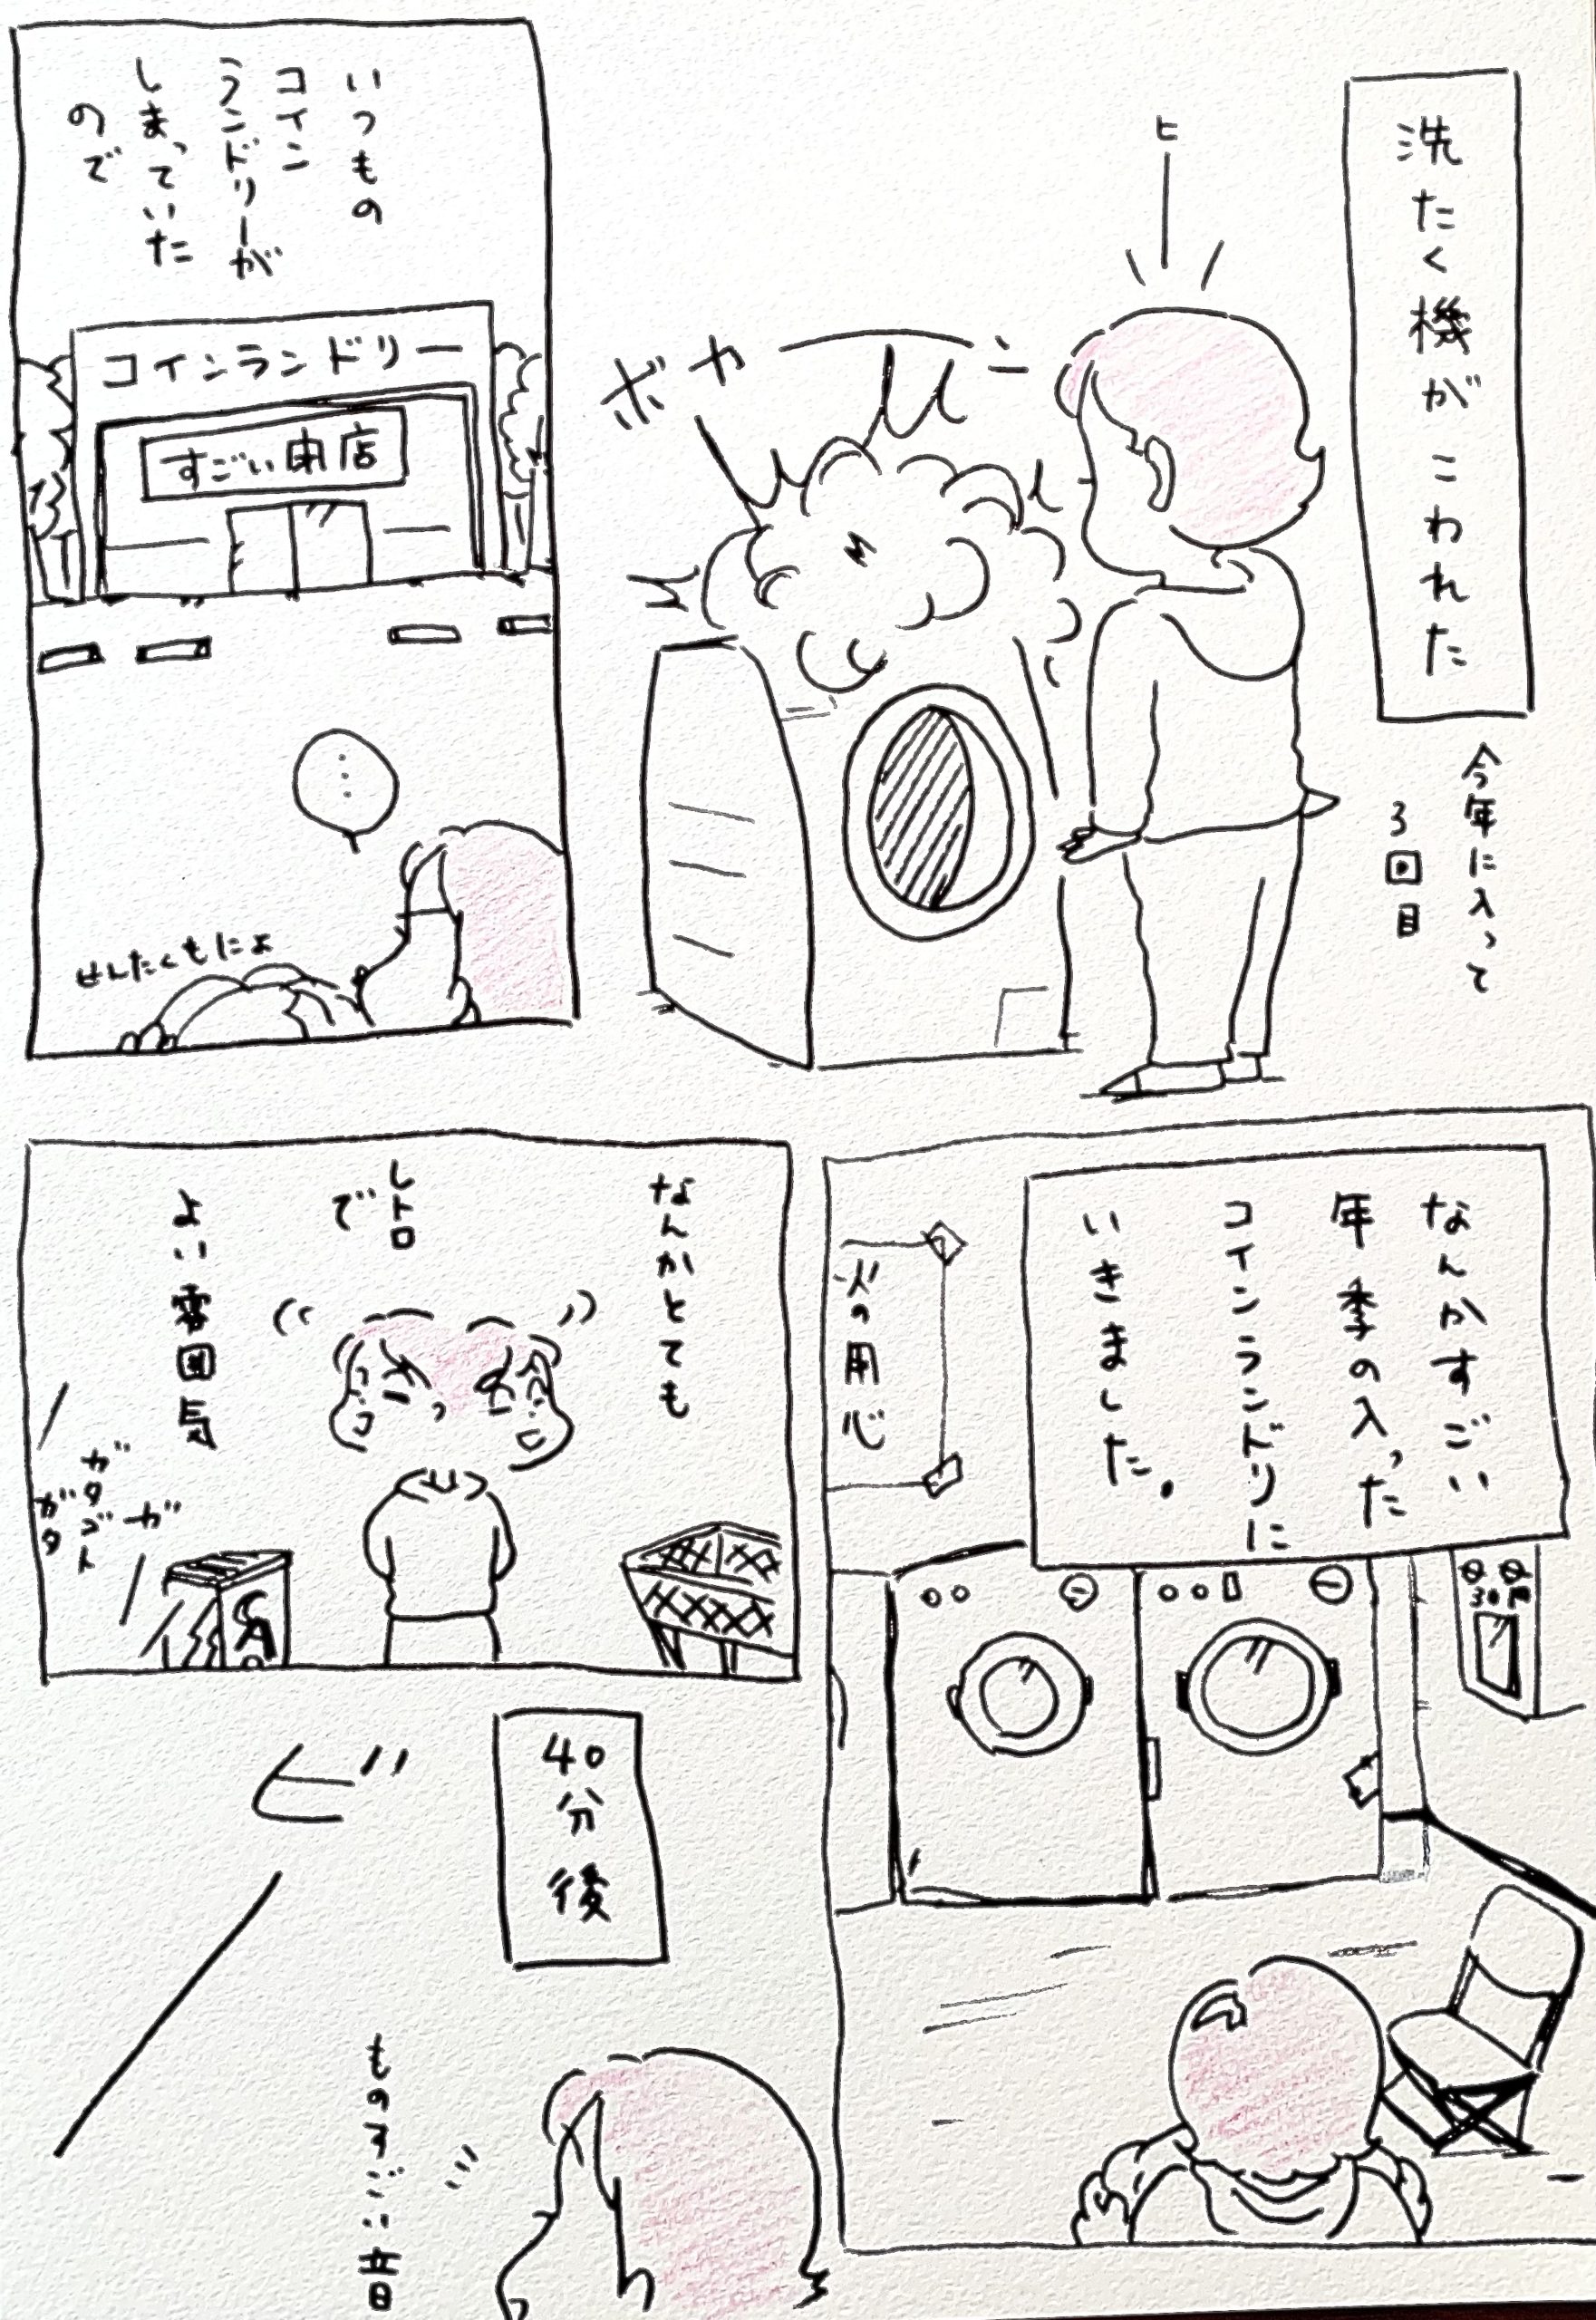 洗たく機がこわれた
今年に入って
3回目
ヒ
ボカーン
いつもの
コイン
ランドリーが
しまっていた
ので
コインランドリー
すごい閉店
…
せんたくもにょ
なんかすごい
年季の入った
コインランドリに
いきました。
火の用心
30円
なんかとても
レトロ
で
よい雰囲気
ガタゴト
ガタ
ガ
40分後
ビー
ものすごい音